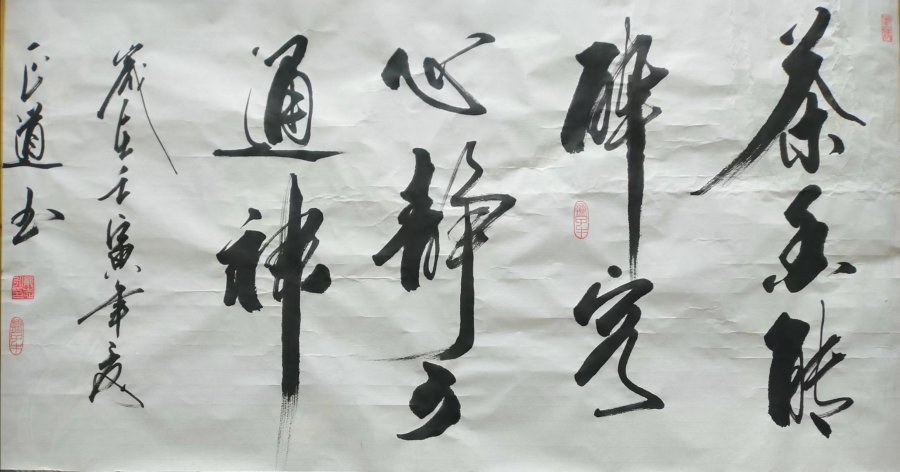 茶香能
醉客
心静可
通神
岁在壬寅年夏
正道书